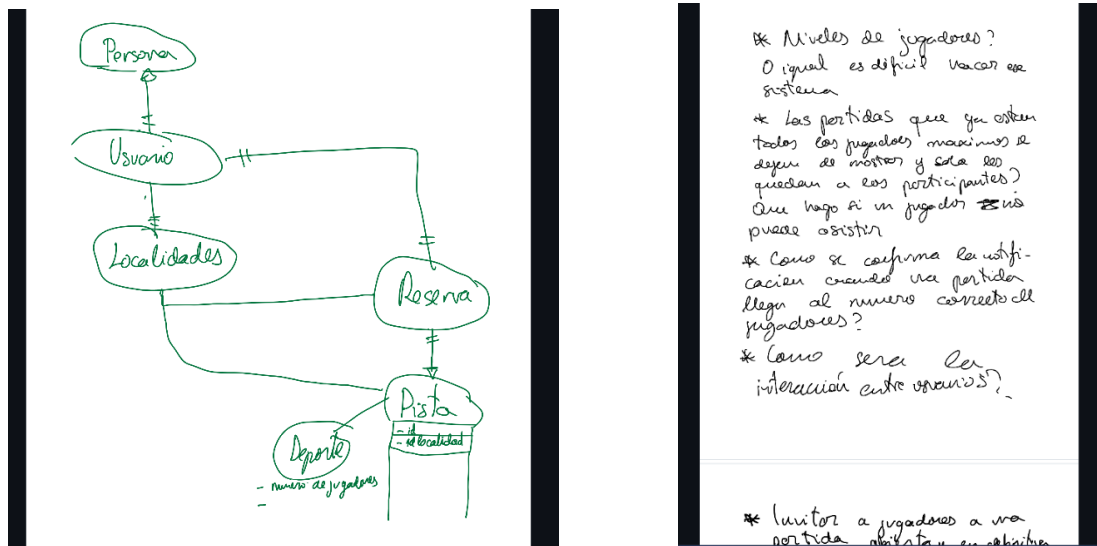 Persona
Usuario
Localidades
Reserva
Pista
- id
- idlocalidad
Deporte
- numero de jugadores
-
* Niveles de jugadores?
O igual es dificil hacer ese
sistema
* Las partidas que ya estan
todos los jugadores maximos se
dejen de mostrar y solo les
quedan a los participantes?
Que hago si un jugador no
puede asistir
* Como se confirma la notifi-
cacion cuando una partida
llega al numero correcto de
jugadores?
* Como sera la
interacción entre usuarios?
* Invitar a jugadores a una
partida abierta y en